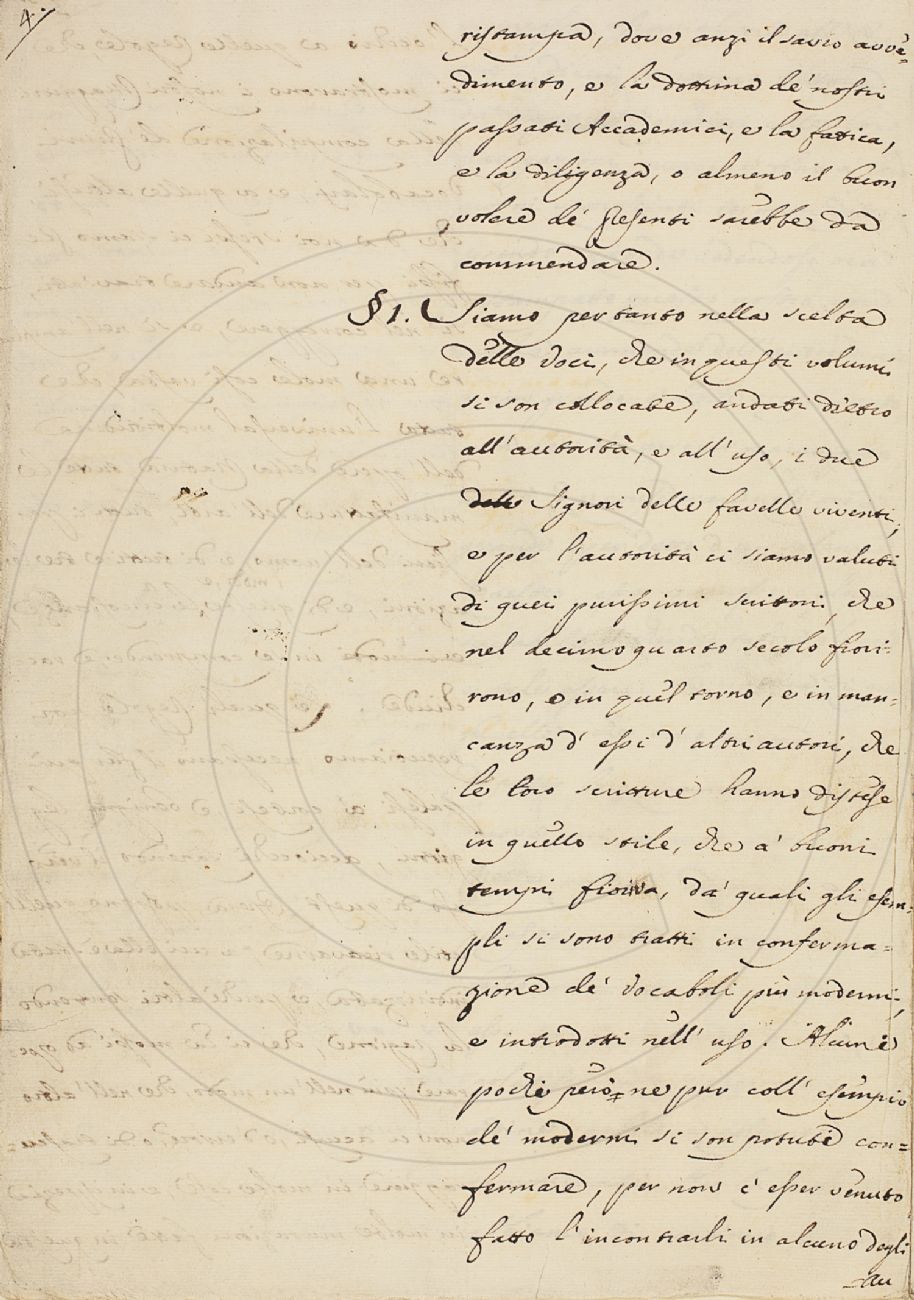 4.
ristampa, dove anzi il savio avve=
dimento, e la dottrina de' nostri
passati Accademici, e la fatica,
e la diligenza, o almeno il buon
volere de' presenti sarebbe da
commendare.
§ 1. Siamo per tanto nella scelta
delle voci, che in questi volumi
si son collocate, andati dietro
all' autorità, e all' uso, i due
delle Signori delle favelle viventi,
e per l'autorità ci siamo valuti
di quei purissimi scrittori, che
nel decimoquarto secolo fiori=
rono, e in quel torno, e in man=
canza d' essi d' altri autori, che
le loro scritture hanno distese
in quello stile, che a' buoni
tempi fioriva, da' quali gli esem=
pli si sono tratti in conferma=
zione de' vocaboli più moderni,
e introdotti nell' uso. Alcune
poche però ne pur coll' esempio
de' moderni si son potute con=
fermare, per non c' esser venuto
fatto l' incontrarli in alcuno degli
au